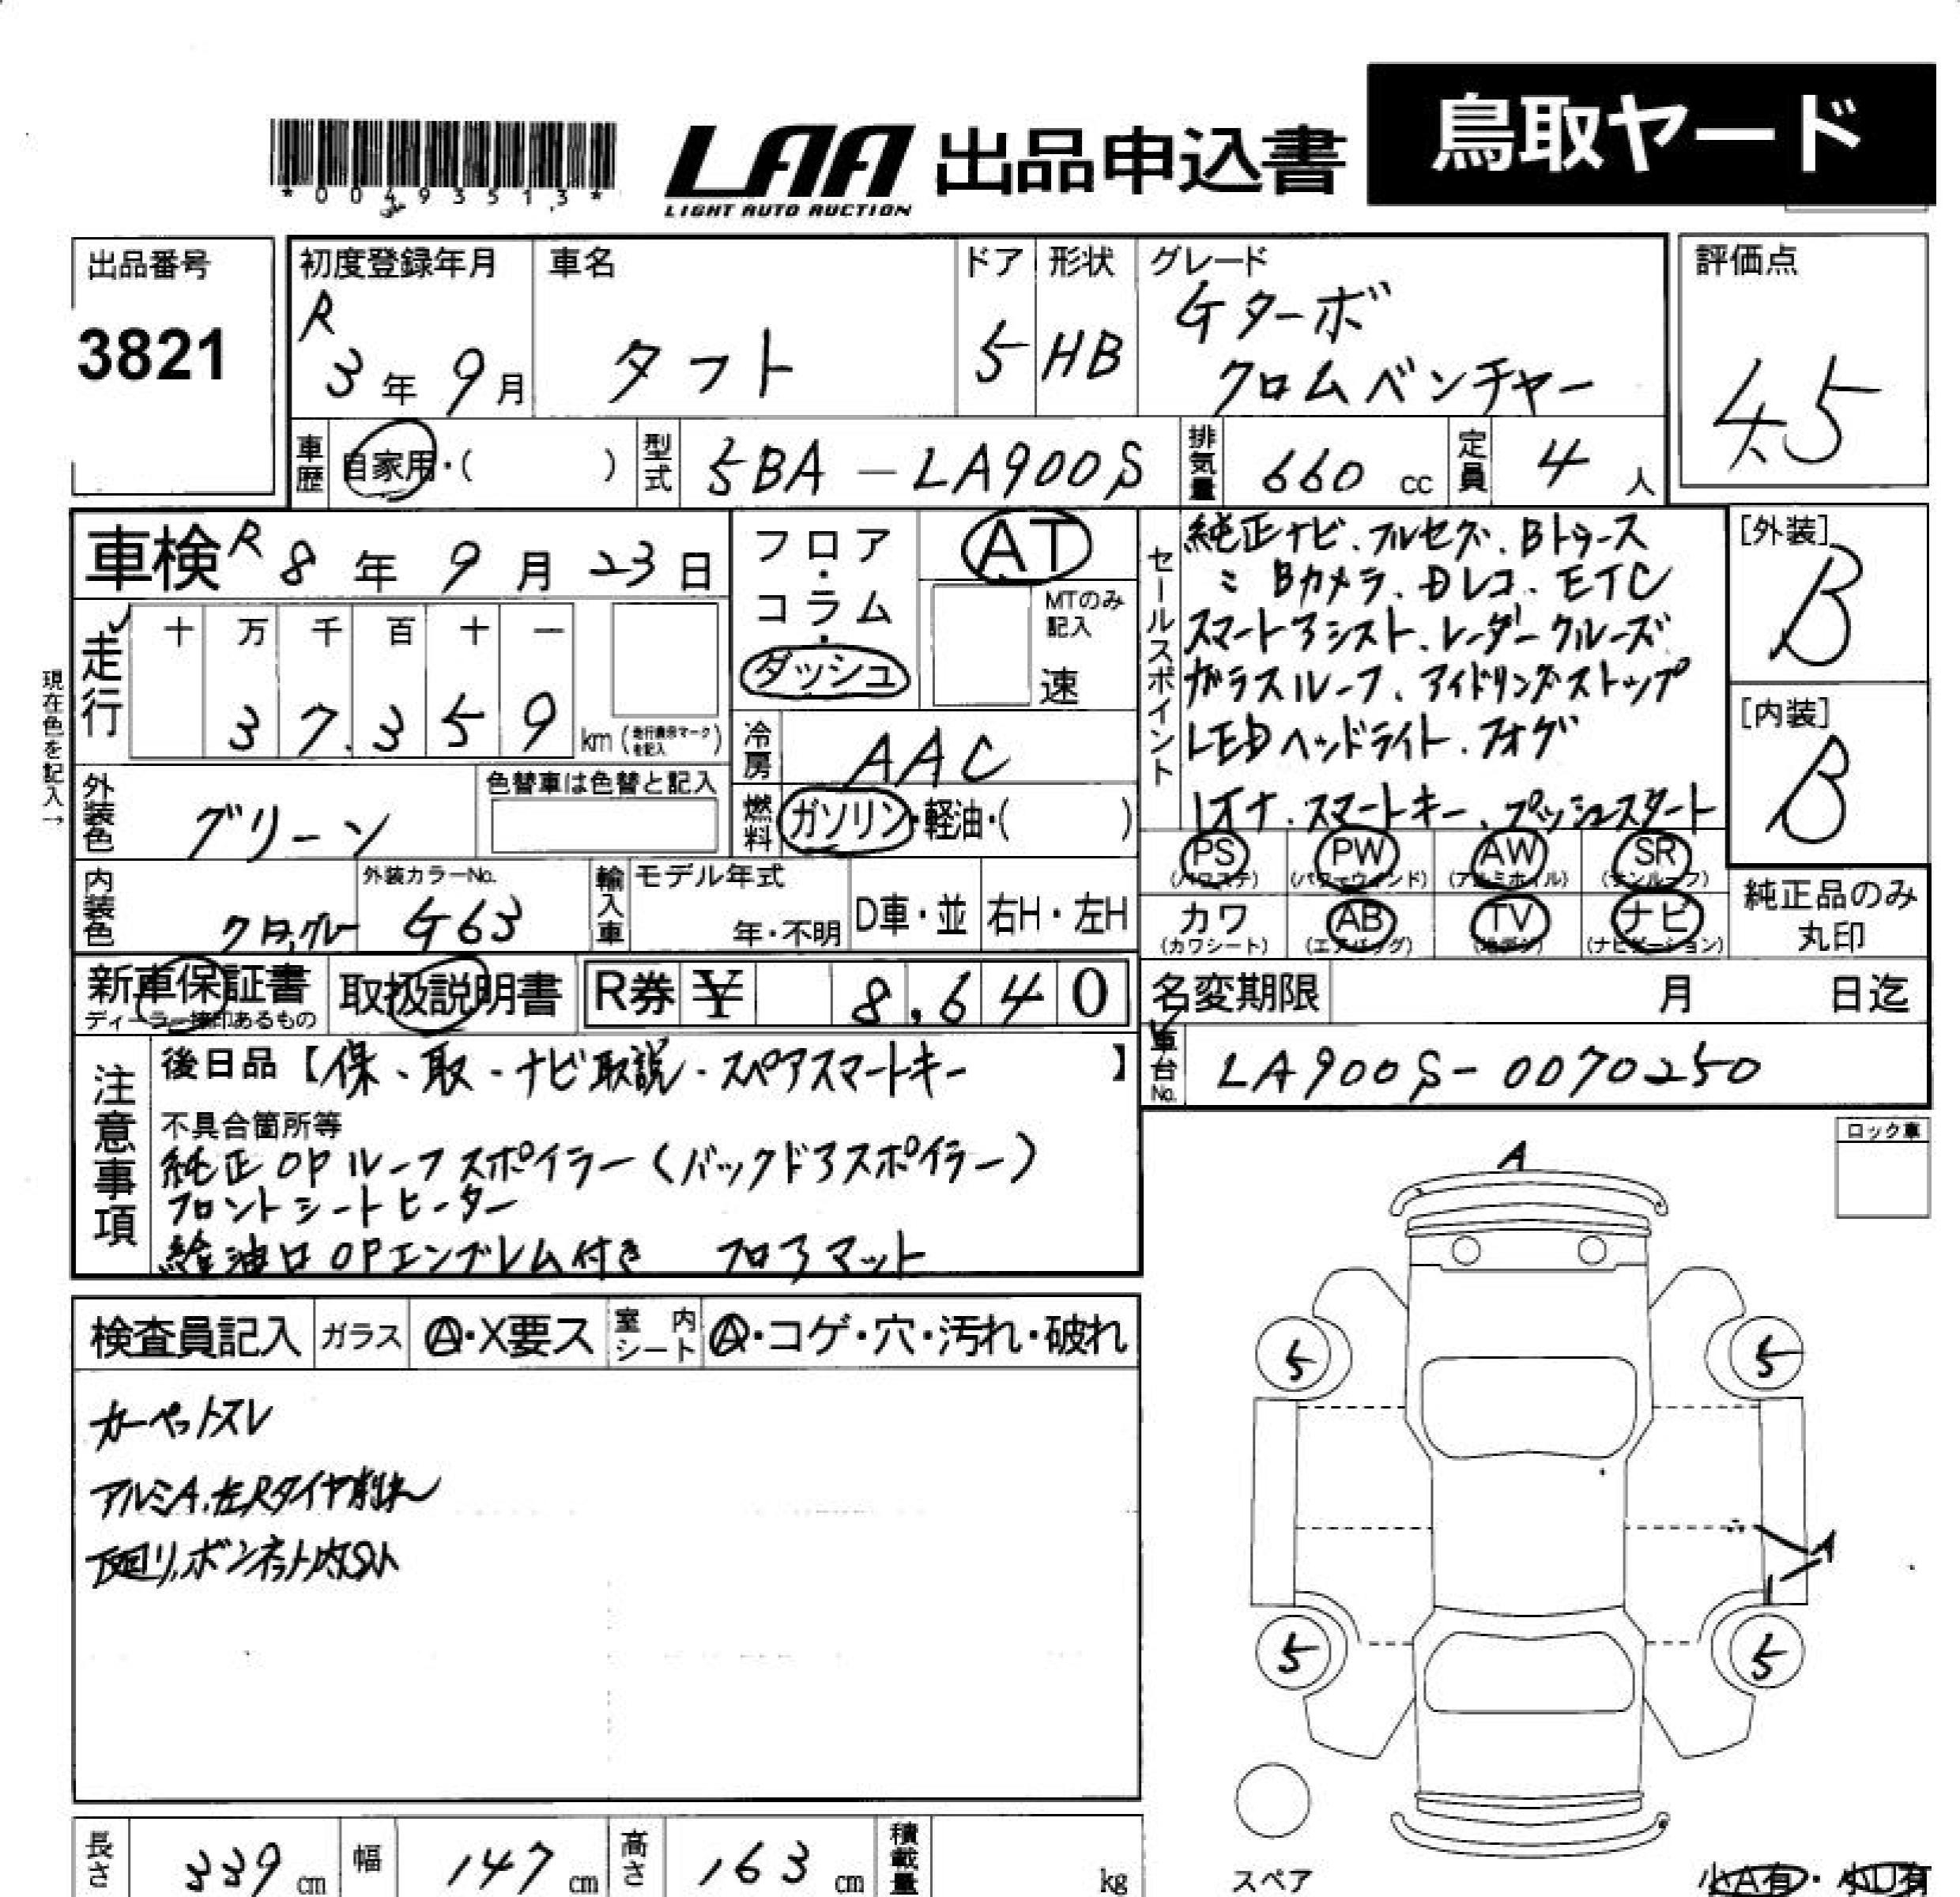 *00493513*
LAA 出品申込書 鳥取ヤード
LIGHT AUTO AUCTION
出品番号
3821
初度登録年月
R
3年9月
車名
タフト
ドア
5
形状
HB
グレード
Gターボ
クロムベンチャー
評価点
4.5
車歴
自家用・( )
型式
5BA-LA900S
排気量
660 cc
定員
4 人
車検 R 8年 9月 23日
走行
十 万 千 百 十 一
3 7.3 5 9 km (走行表示マークを記入)
現在色を記入→
フロア・コラム・ダッシュ
AT
MTのみ記入
速
冷房
AAC
燃料
ガソリン・軽油・( )
外装色
グリーン
色替車は色替と記入
内装色
外装カラーNo.
G63
輸入車
モデル年式
年・不明
D車・並
右H・左H
セールスポイント
純正ナビ、フルセグ、Bトゥース
Bカメラ、Dレコ、ETC
スマートアシスト、レーダークルーズ
ガラスルーフ、アイドリングストップ
LEDヘッドライト、フォグ
1オナ、スマートキー、プッシュスタート
[外装]
B
[内装]
B
PS PW AW SR
(パワステ) (パワーウィンド) (アルミホイル) (サンルーフ)
カワ AB TV ナビ
(カワシート) (エアバッグ) (地デジ) (ナビゲーション)
純正品のみ
丸印
新車保証書
ディーラー捺印あるもの
取扱説明書
R券 ¥ 8,640
名変期限 月 日迄
車台No.
LA900S-0070250
注意事項
後日品【保、取、ナビ取説、スペアスマートキー】
不具合箇所等
純正OPルーフスポイラー(バックドアスポイラー)
フロントシートヒーター
給油口OPエンブレム付き フロアマット
ロック車
A
検査員記入
ガラス
A・X要ス
室内シート
A・コゲ・穴・汚れ・破れ
カーペットスレ
アルミA、左Rタイヤ削れ
下廻り、ボンネット内サビ
5 5
A
5 5
スペア
小A有・小U有
長さ
339 cm
幅
147 cm
高さ
163 cm
積載量
kg